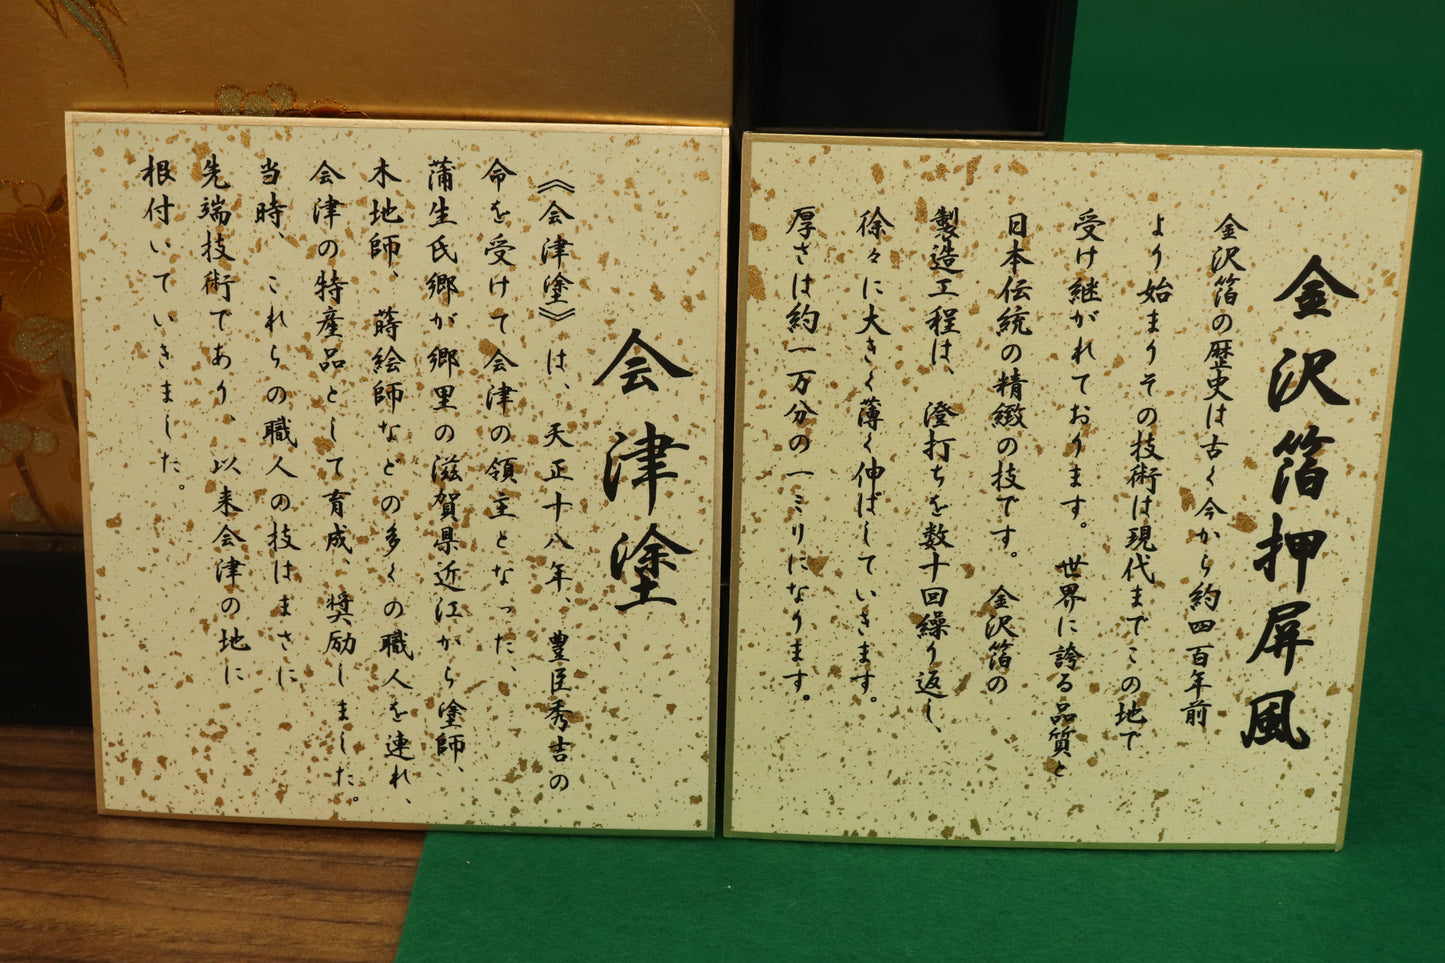 金沢箔押屏風
金沢箔の歴史は古く今から約四百年前
より始まりその技術は現代までこの地で
受け継がれております。世界に誇る品質と
日本伝統の精緻の技です。金沢箔の
製造工程は、澄打ちを数十回繰り返し、
徐々に大きく薄く伸ばしていきます。
厚さは約一万分の一ミリになります。
会津塗
《会津塗》は、天正十八年、豊臣秀吉の
命を受けて、会津の領主となった、
蒲生氏郷が郷里の滋賀県近江から塗師、
木地師、蒔絵師などの多くの職人を連れ、
会津の特産品として育成、奨励しました。
当時、これらの職人の技はまさに
先端技術であり、以来会津の地に
根付いていきました。